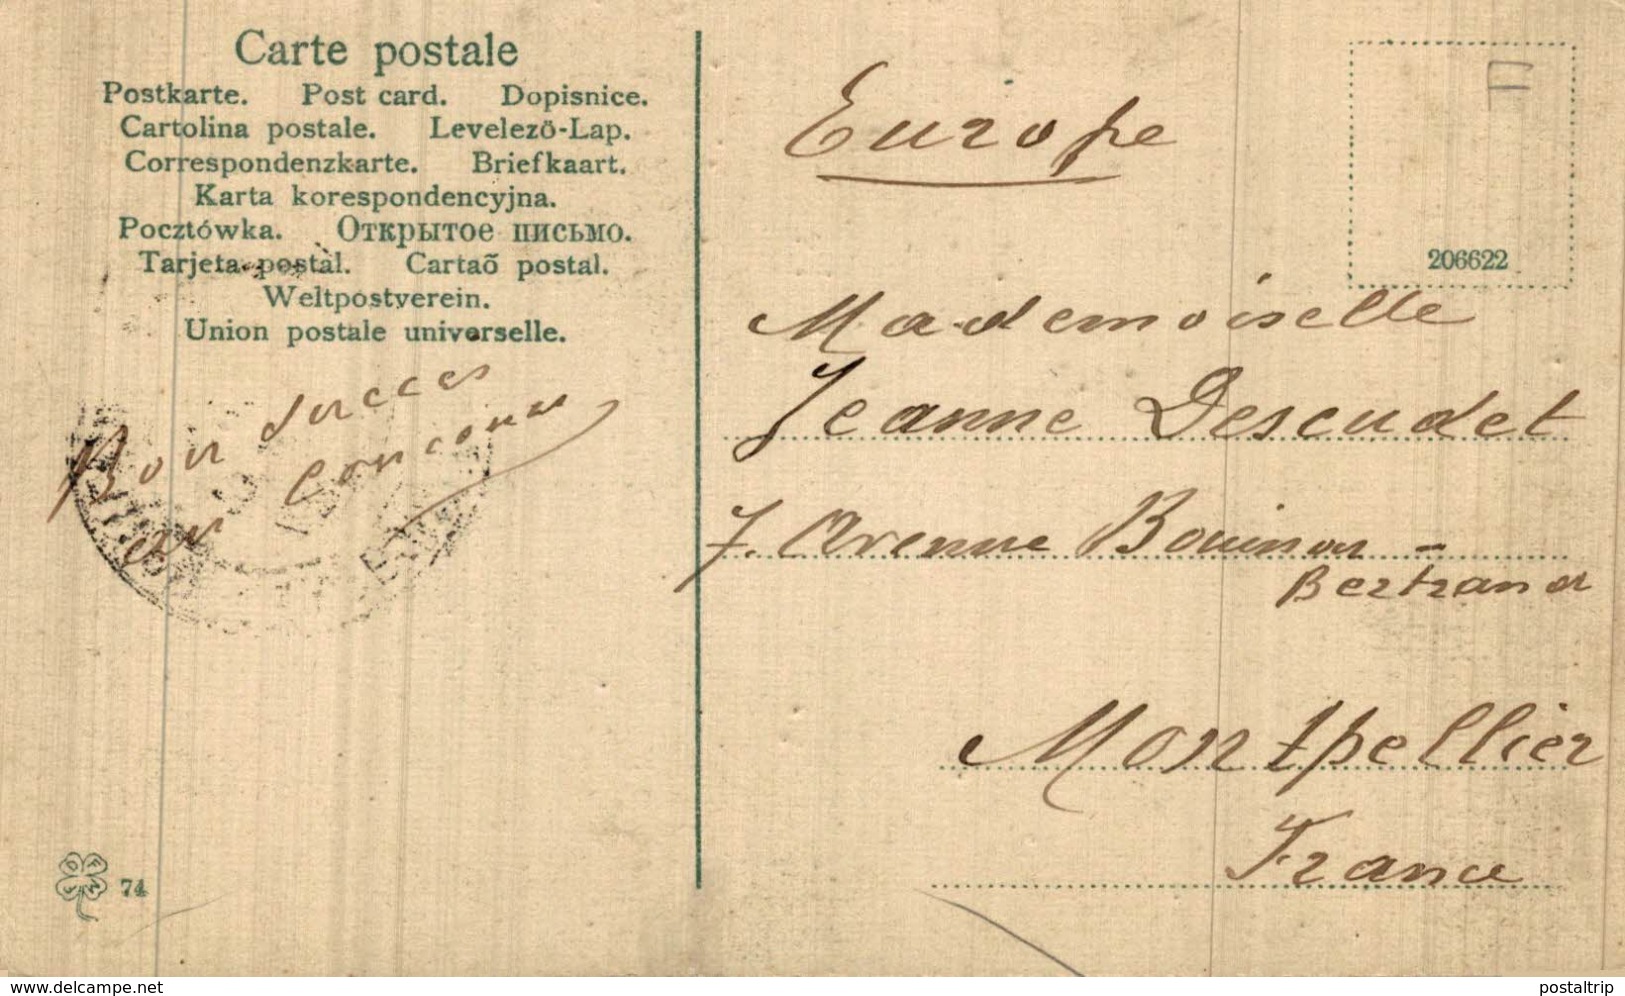 Carte postale
Postkarte. Post card. Dopisnice.
Cartolina postale. Levelezö-Lap.
Correspondenzkarte. Briefkaart.
Karta korespondencyjna.
Pocztówka. Открытое письмо.
Tarjeta postal. Cartaõ postal.
Weltpostverein.
Union postale universelle.
Bon succes
au concours
74
Europe
F
206622
Mademoiselle
Jeanne Descudet
7. Avenue Bouisson -
Bertrand
Montpellier
France
www.delcampe.net
postaltrip